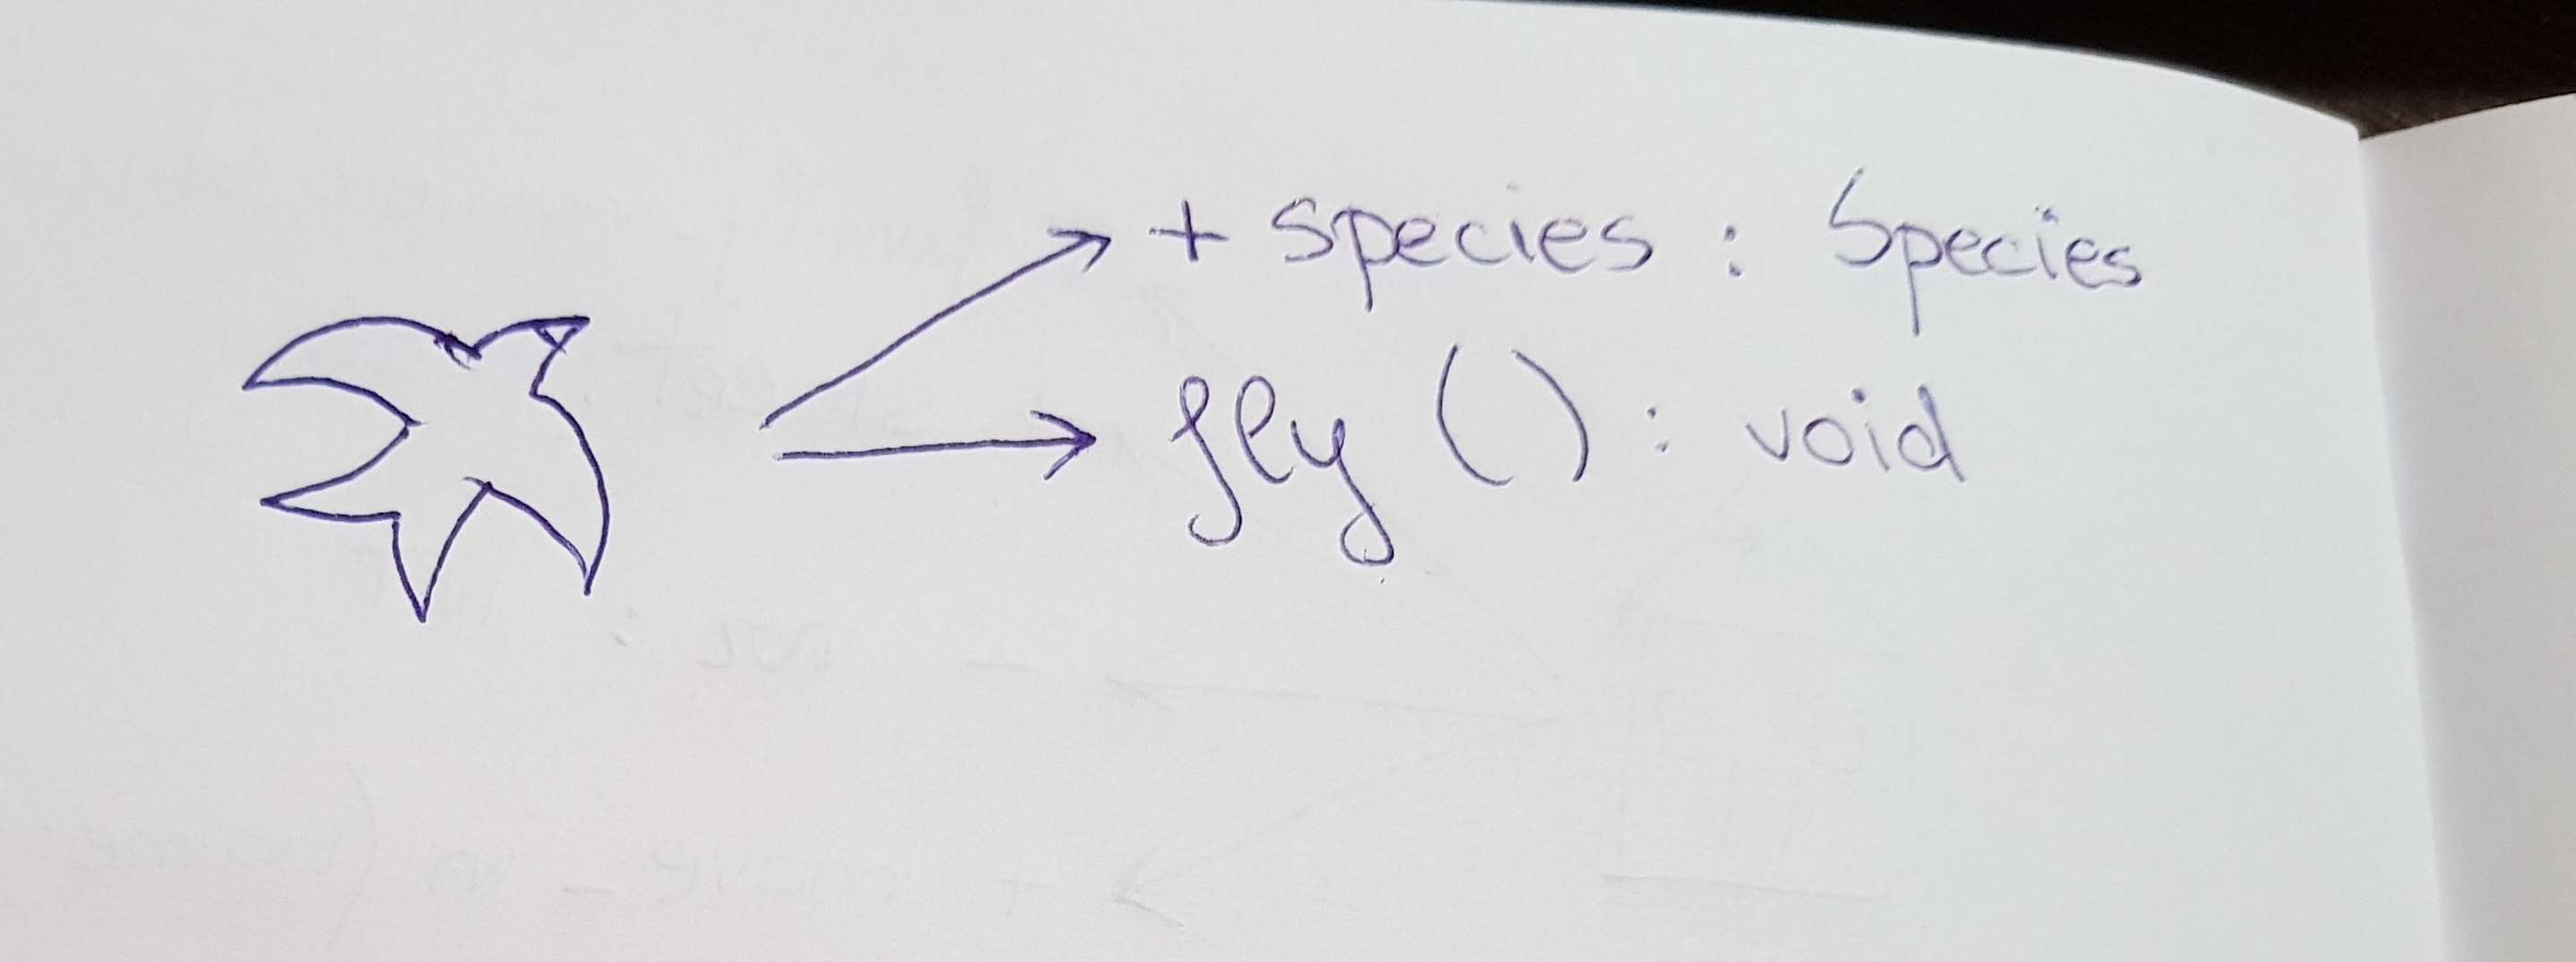 + species : Species
fly () : void